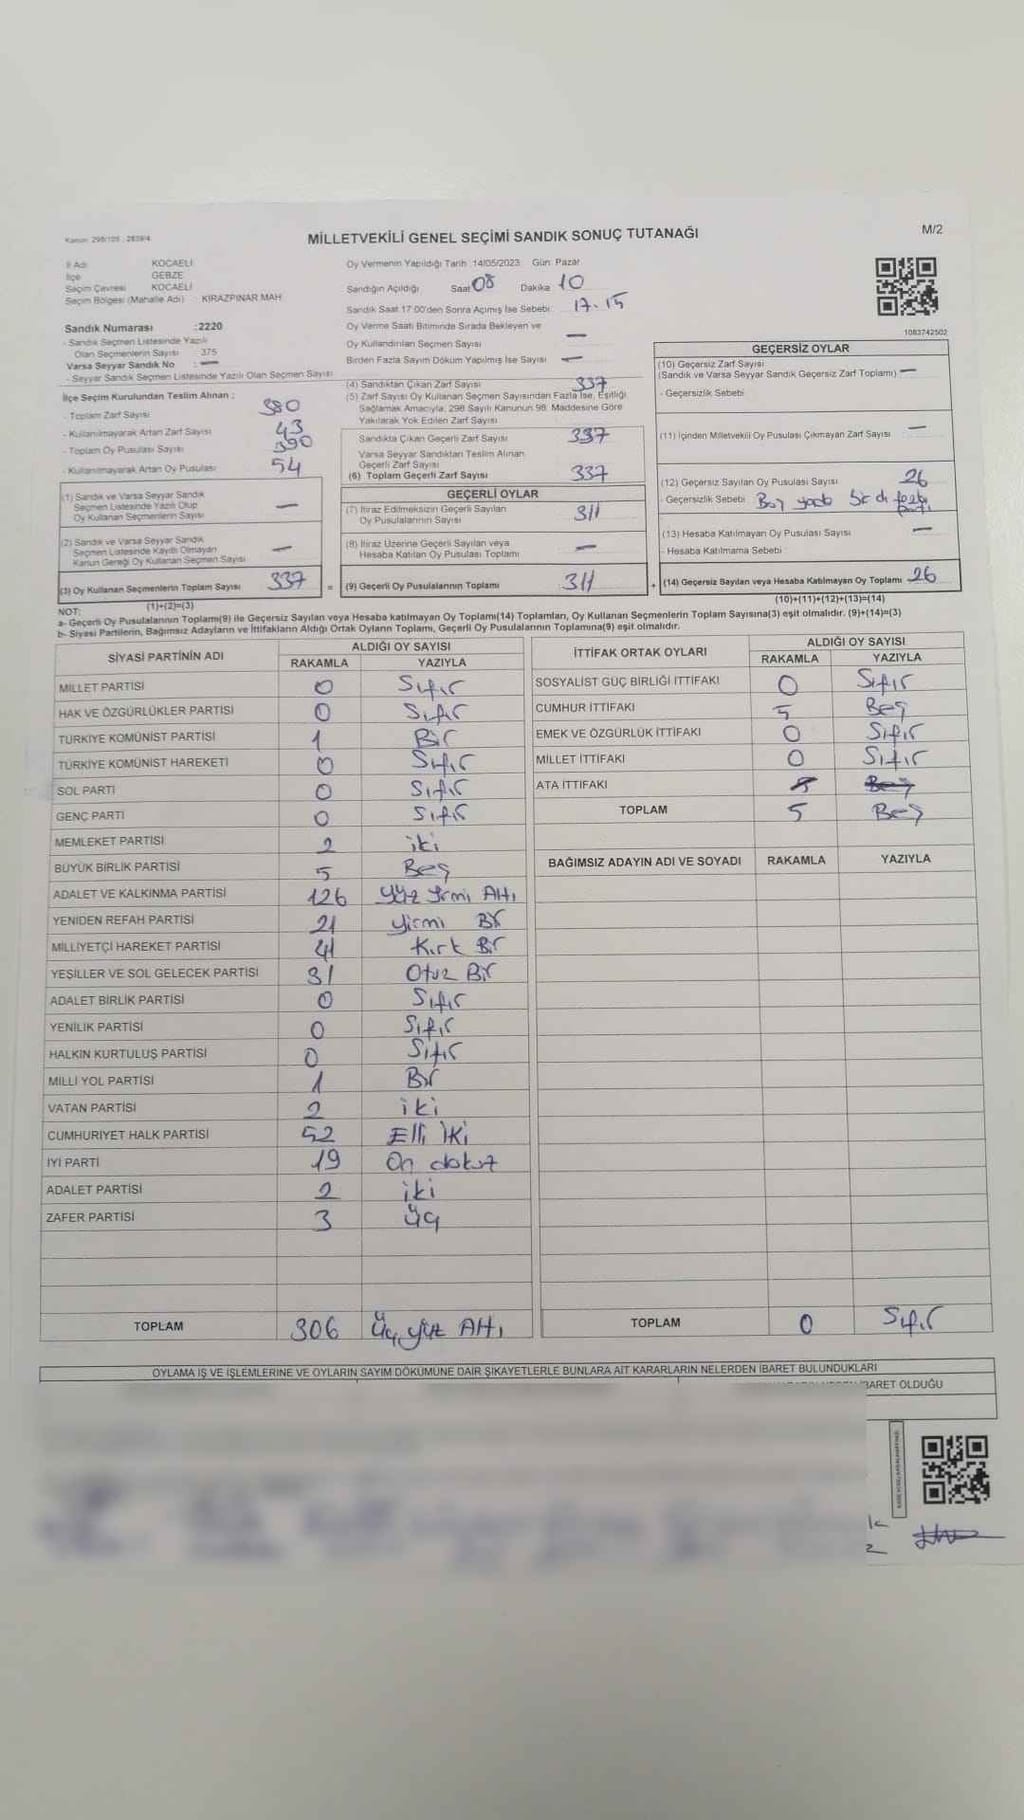 Kanun: 298/105 ; 2839/4
MİLLETVEKİLİ GENEL SEÇİMİ SANDIK SONUÇ TUTANAĞI
M/2
İl Adı KOCAELİ
İlçe GEBZE
Seçim Çevresi KOCAELİ
Seçim Bölgesi (Mahalle Adı) KIRAZPINAR MAH.
Sandık Numarası :2220
- Sandık Seçmen Listesinde Yazılı
Olan Seçmenlerin Sayısı 375
Varsa Seyyar Sandık No : —
- Seyyar Sandık Seçmen Listesinde Yazılı Olan Seçmen Sayısı
İlçe Seçim Kurulundan Teslim Alınan :
- Toplam Zarf Sayısı 380
- Kullanılmayarak Artan Zarf Sayısı 43
- Toplam Oy Pusulası Sayısı 390
- Kullanılmayarak Artan Oy Pusulası 54
(1) Sandık ve Varsa Seyyar Sandık
Seçmen Listesinde Yazılı Olup
Oy Kullanan Seçmenlerin Sayısı —
(2) Sandık ve Varsa Seyyar Sandık
Seçmen Listesinde Kayıtlı Olmayan
Kanun Gereği Oy Kullanan Seçmen Sayısı —
(3) Oy Kullanan Seçmenlerin Toplam Sayısı 337
(1)+(2)=(3)
Oy Vermenin Yapıldığı Tarih :14/05/2023 Gün: Pazar
Sandığın Açıldığı Saat 08 Dakika 10
Sandık Saat 17.00'den Sonra Açımış İse Sebebi: 17.15
Oy Verme Saati Bitiminde Sırada Bekleyen ve
Oy Kullandırılan Seçmen Sayısı —
Birden Fazla Sayım Döküm Yapılmış İse Sayısı —
(4) Sandıktan Çıkan Zarf Sayısı 337
(5) Zarf Sayısı Oy Kullanan Seçmen Sayısından Fazla İse, Eşitliği
Sağlamak Amacıyla; 298 Sayılı Kanunun 98. Maddesine Göre
Yakılarak Yok Edilen Zarf Sayısı
Sandıkta Çıkan Geçerli Zarf Sayısı 337
Varsa Seyyar Sandıktan Teslim Alınan
Geçerli Zarf Sayısı
(6) Toplam Geçerli Zarf Sayısı 337
GEÇERLİ OYLAR
(7) İtiraz Edilmeksizin Geçerli Sayılan
Oy Pusulalarının Sayısı 311
(8) İtiraz Üzerine Geçerli Sayılan veya
Hesaba Katılan Oy Pusulası Toplamı —
= (9) Geçerli Oy Pusulalarının Toplamı 311
1083742502
GEÇERSİZ OYLAR
(10) Geçersiz Zarf Sayısı
(Sandık ve Varsa Seyyar Sandık Geçersiz Zarf Toplamı) —
- Geçersizlik Sebebi
(11) İçinden Milletvekili Oy Pusulası Çıkmayan Zarf Sayısı —
(12) Geçersiz Sayılan Oy Pusulası Sayısı 26
- Geçersizlik Sebebi
(13) Hesaba Katılmayan Oy Pusulası Sayısı —
- Hesaba Katılmama Sebebi :
+ (14) Geçersiz Sayılan veya Hesaba Katılmayan Oy Toplamı 26
(10)+(11)+(12)+(13)=(14)
NOT:
a- Geçerli Oy Pusulalarının Toplamı(9) ile Geçersiz Sayılan veya Hesaba katılmayan Oy Toplamı(14) Toplamları, Oy Kullanan Seçmenlerin Toplam Sayısına(3) eşit olmalıdır. (9)+(14)=(3)
b- Siyasi Partilerin, Bağımsız Adayların ve İttifakların Aldığı Ortak Oyların Toplamı, Geçerli Oy Pusulalarının Toplamına(9) eşit olmalıdır.
SİYASİ PARTİNİN ADI ALDIĞI OY SAYISI
RAKAMLA YAZIYLA
MİLLET PARTİSİ 0 Sıfır
HAK VE ÖZGÜRLÜKLER PARTİSİ 0 Sıfır
TÜRKİYE KOMÜNİST PARTİSİ 1 Bir
TÜRKİYE KOMÜNİST HAREKETİ 0 Sıfır
SOL PARTİ 0 Sıfır
GENÇ PARTİ 0 Sıfır
MEMLEKET PARTİSİ 2 iki
BÜYÜK BİRLİK PARTİSİ 5 Beş
ADALET VE KALKINMA PARTİSİ 126 Yüz Yirmi Altı
YENİDEN REFAH PARTİSİ 21 Yirmi Bir
MİLLİYETÇİ HAREKET PARTİSİ 41 Kırk Bir
YEŞİLLER VE SOL GELECEK PARTİSİ 31 Otuz Bir
ADALET BİRLİK PARTİSİ 0 Sıfır
YENİLİK PARTİSİ 0 Sıfır
HALKIN KURTULUŞ PARTİSİ 0 Sıfır
MİLLİ YOL PARTİSİ 1 Bir
VATAN PARTİSİ 2 iki
CUMHURİYET HALK PARTİSİ 52 Elli İki
İYİ PARTİ 19 On dokuz
ADALET PARTİSİ 2 iki
ZAFER PARTİSİ 3 üç
TOPLAM 306 Üç yüz Altı
İTTİFAK ORTAK OYLARI ALDIĞI OY SAYISI
RAKAMLA YAZIYLA
SOSYALİST GÜÇ BİRLİĞİ İTTİFAKI 0 Sıfır
CUMHUR İTTİFAKI 5 Beş
EMEK VE ÖZGÜRLÜK İTTİFAKI 0 Sıfır
MİLLET İTTİFAKI 0 Sıfır
ATA İTTİFAKI
TOPLAM 5 Beş
BAĞIMSIZ ADAYIN ADI VE SOYADI RAKAMLA YAZIYLA
TOPLAM 0 Sıfır
OYLAMA İŞ VE İŞLEMLERİNE VE OYLARIN SAYIM DÖKÜMÜNE DAİR ŞİKAYETLERLE BUNLARA AİT KARARLARIN NELERDEN İBARET BULUNDUKLARI
BARET OLDUĞU